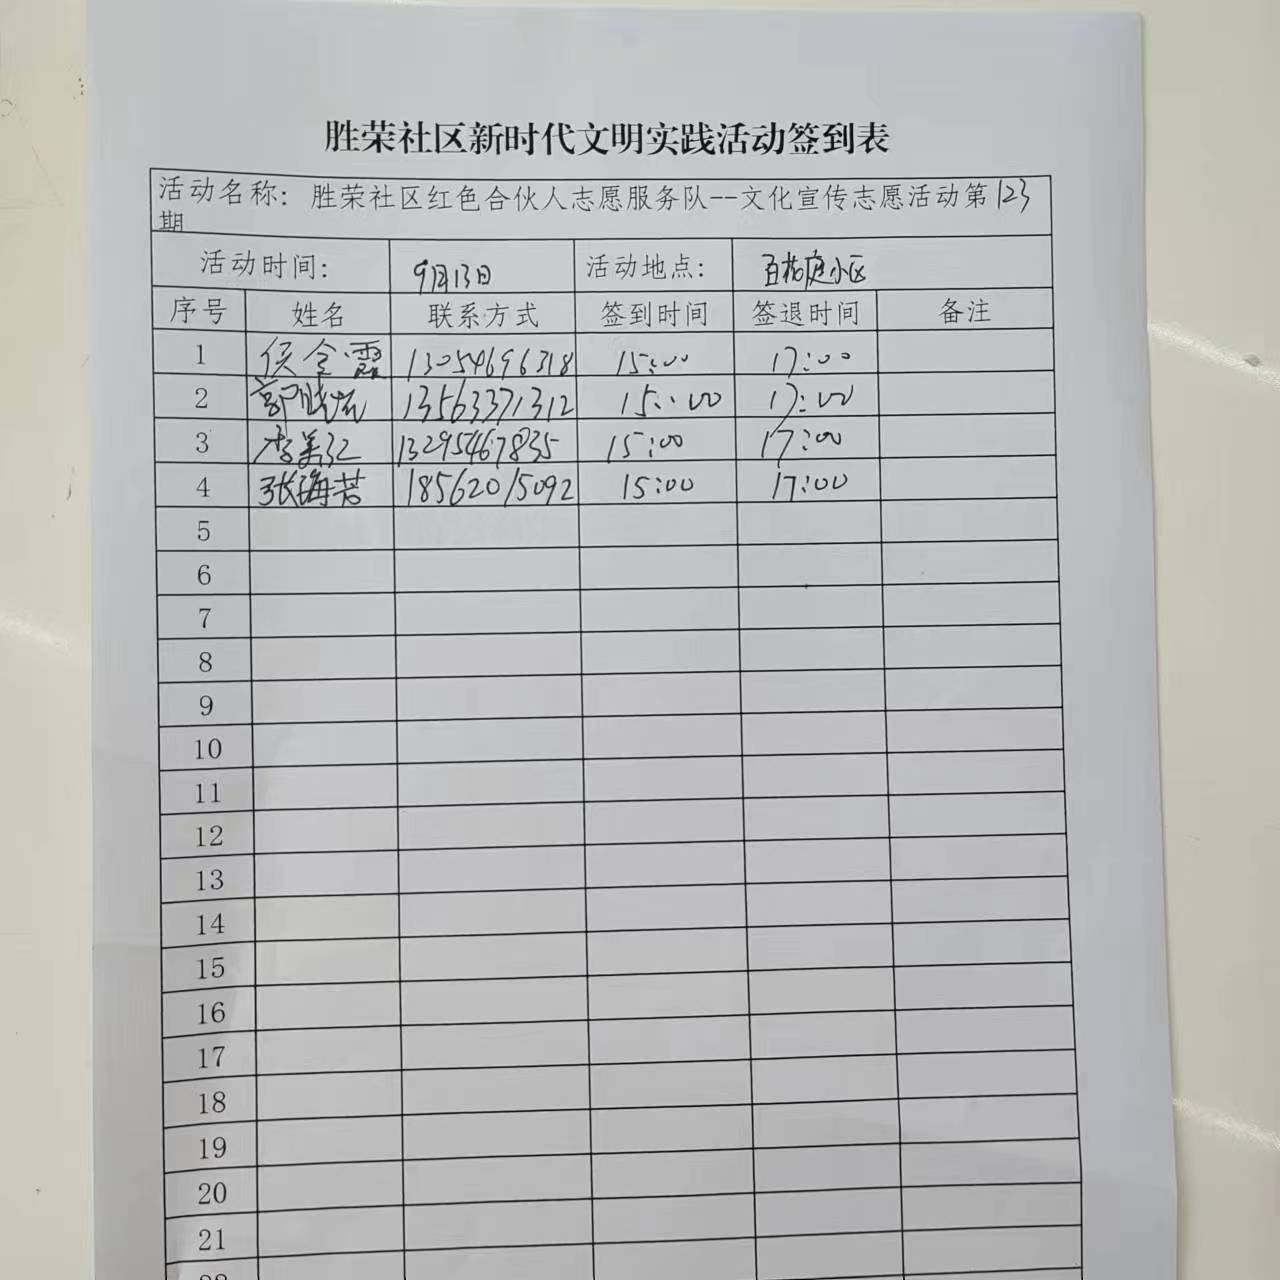 胜荣社区新时代文明实践活动签到表
活动名称：胜荣社区红色合伙人志愿服务队--文化宣传志愿活动第123
期
活动时间： 9月13日 活动地点： 小区
序号 姓名 联系方式 签到时间 签退时间 备注
1 侯令霞 13054696318 15:00 17:00
2 郭 13563371312 15:00 17:00
3 李美红 13295467835 15:00 17:00
4 张海苦 18562015092 15:00 17:00
5
6
7
8
9
10
11
12
13
14
15
16
17
18
19
20
21
22